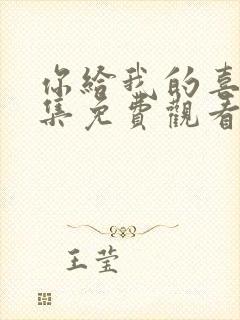 你給我的喜
集免費觀看
王莹